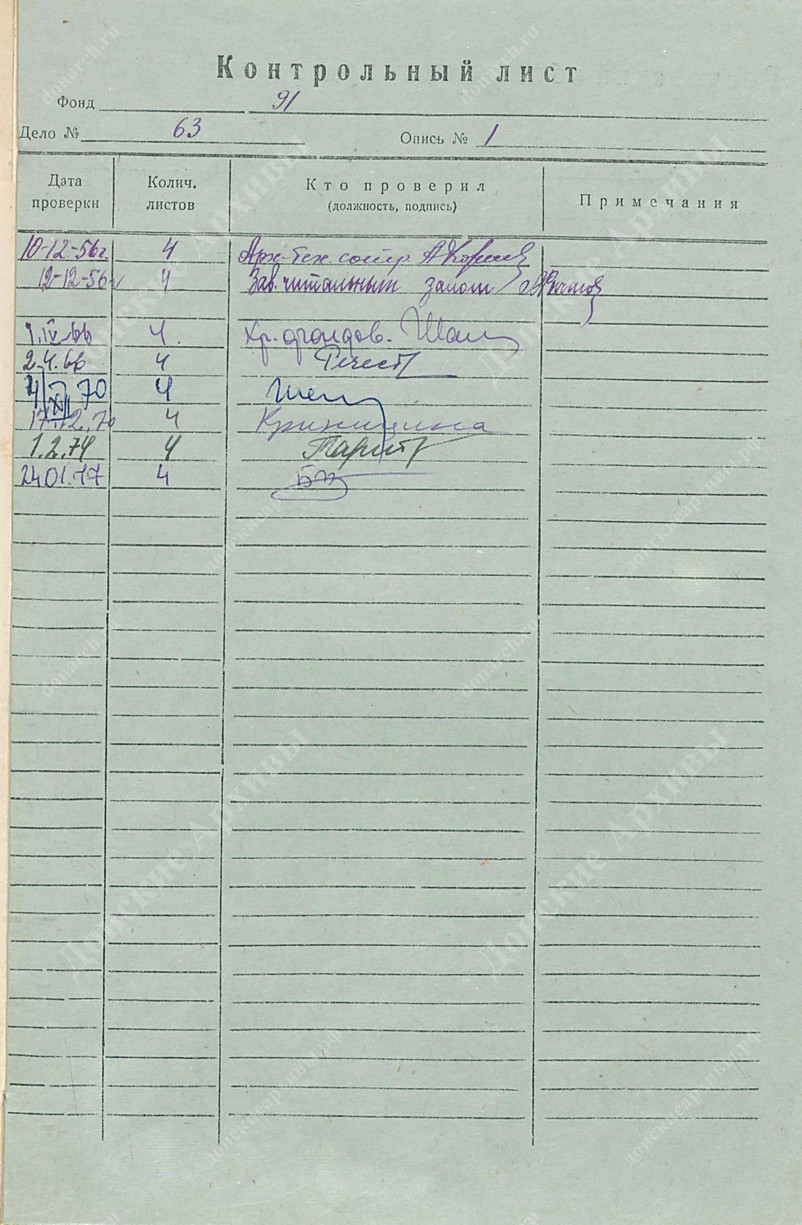 Контрольный лист
Фонд 91
Дело № 63 Опись № 1
Дата проверки Колич. листов Кто проверил (должность, подпись) Примечания
10-12-56г. 4 Арх-тех. сотр.
12-12-56г 4 Зав. читальным залом
1.IV.66 4. Хр. фондов.
2.4.66 4
4 XII 70 4
17.12.70 4 Криницина
1.2.74 4
24.01.77 4
donarch.ru
Донские Архивы
донскиеархивы.рф